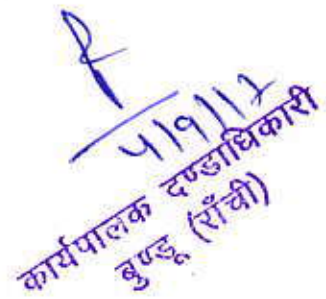 4/9/17
कार्यपालक दण्डाधिकारी
बुण्डू (राँची)